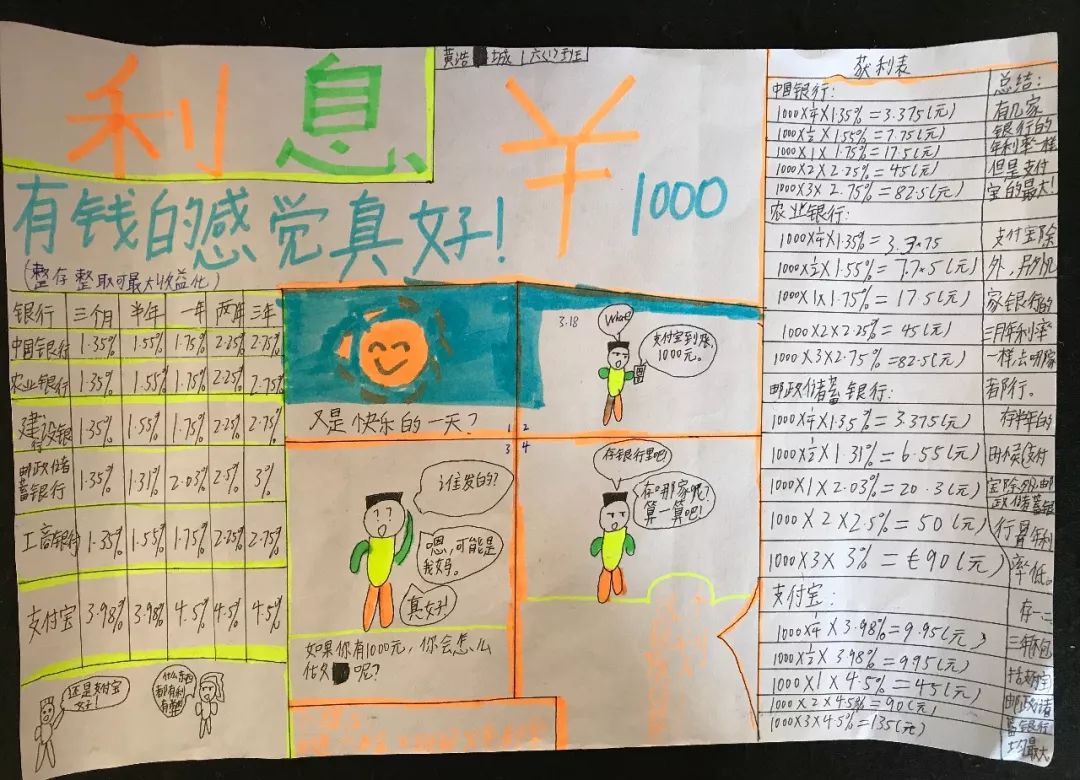 利息
黄浩 城 六(1)班
¥1000
有钱的感觉真好!
(整存整取可最大收益化)
银行 三个月 半年 一年 两年 三年
中国银行 1.35% 1.55% 1.75% 2.25% 2.75%
农业银行 1.35% 1.55% 1.75% 2.25% 2.75%
建设银行 1.35% 1.55% 1.75% 2.25% 2.75%
邮政储蓄银行 1.35% 1.31% 2.03% 2.5% 3%
工商银行 1.35% 1.55% 1.75% 2.25% 2.75%
支付宝 3.98% 3.98% 4.5% 4.5% 4.5%
还是支付宝
好!
又是快乐的一天?
1 2
3 4
3.18
What?
支付宝到账,
1000元。
谁发的?
嗯,可能是
我妈。
真好!
如果你有1000元,你会怎么
呢?
存银行里吧
存哪家呢?
算一算吧!
获利表
中国银行:
1000×1/4×1.35%=3.375(元)
1000×1/2×1.55%=7.75(元)
1000×1×1.75%=17.5(元)
1000×2×2.25%=45(元)
1000×3×2.75%=82.5(元)
农业银行:
1000×1/4×1.35%=3.375
1000×1/2×1.55%=7.75(元)
1000×1×1.75%=17.5(元)
1000×2×2.25%=45(元)
1000×3×2.75%=82.5(元)
邮政储蓄银行:
1000×1/4×1.35%=3.375(元)
1000×1/2×1.31%=6.55(元)
1000×1×2.03%=20.3(元)
1000×2×2.5%=50(元)
1000×3×3%=90(元)
支付宝:
1000×1/4×3.98%=9.95(元)
1000×1/2×398%=995(元)
1000×1×4.5%=45(元)
1000×2×4.5%=90(元)
1000×3×4.5%=135(元)
总结:
有几家
银行的
年利率一样
但是支付
宝的最大!
支付宝除
外,另外几
家银行的
三月年利率
一样去哪家
都行。
存半年的
时候(支付
宝除外)邮
政储蓄银
行是年利
率低。
存一二
三年不包
括支付宝
邮政储
蓄银行
最大